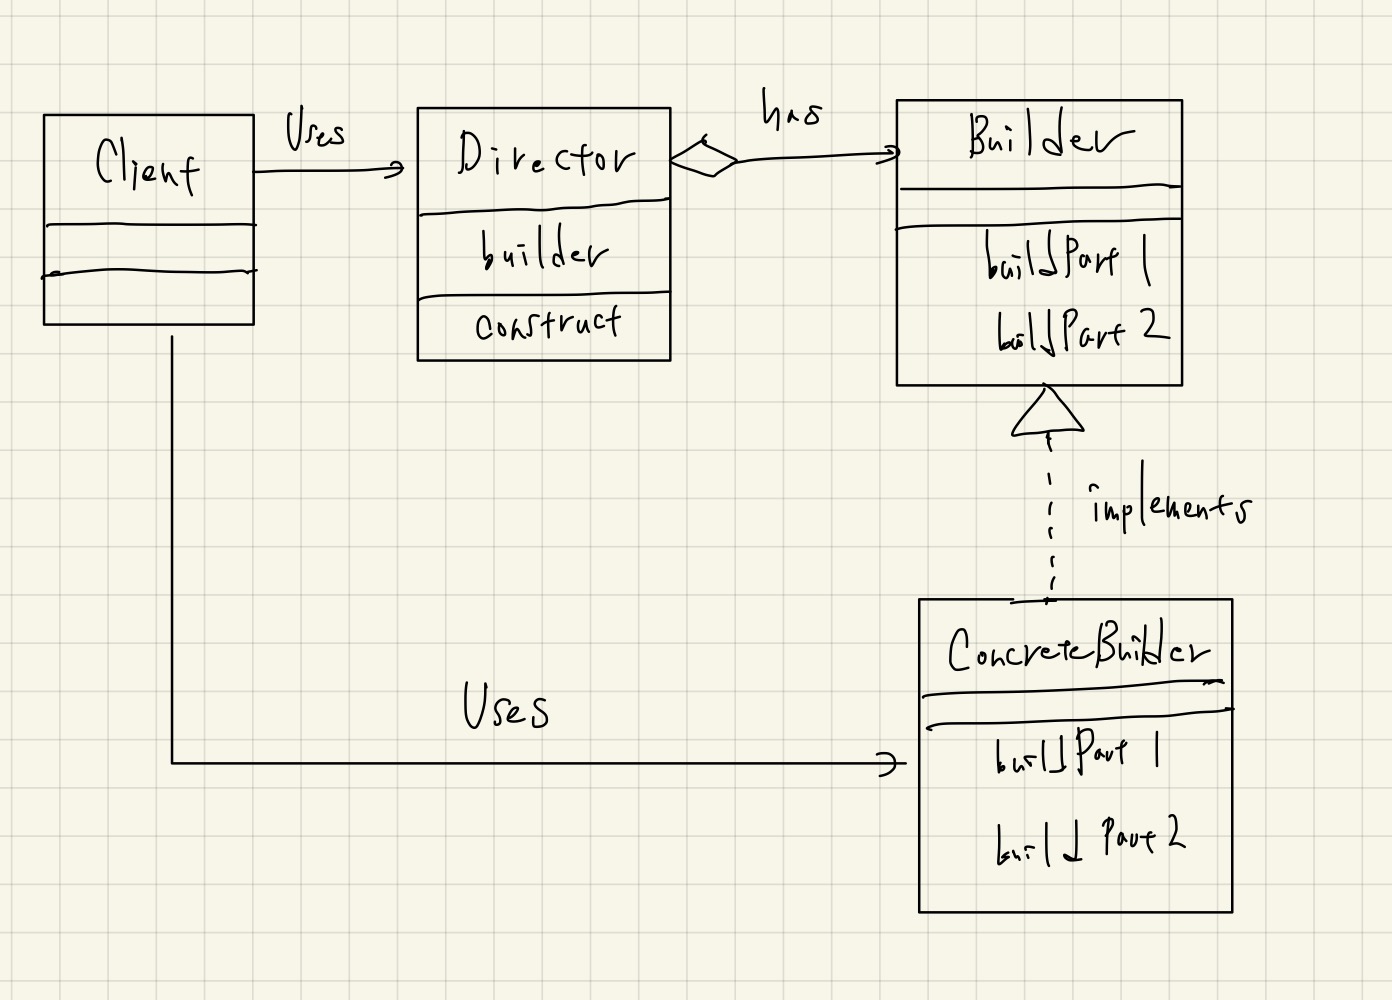 Client
Uses
Director
builder
construct
has
Builder
buildPart 1
buildPart 2
implements
ConcreteBuilder
buildPart 1
build Part 2
Uses